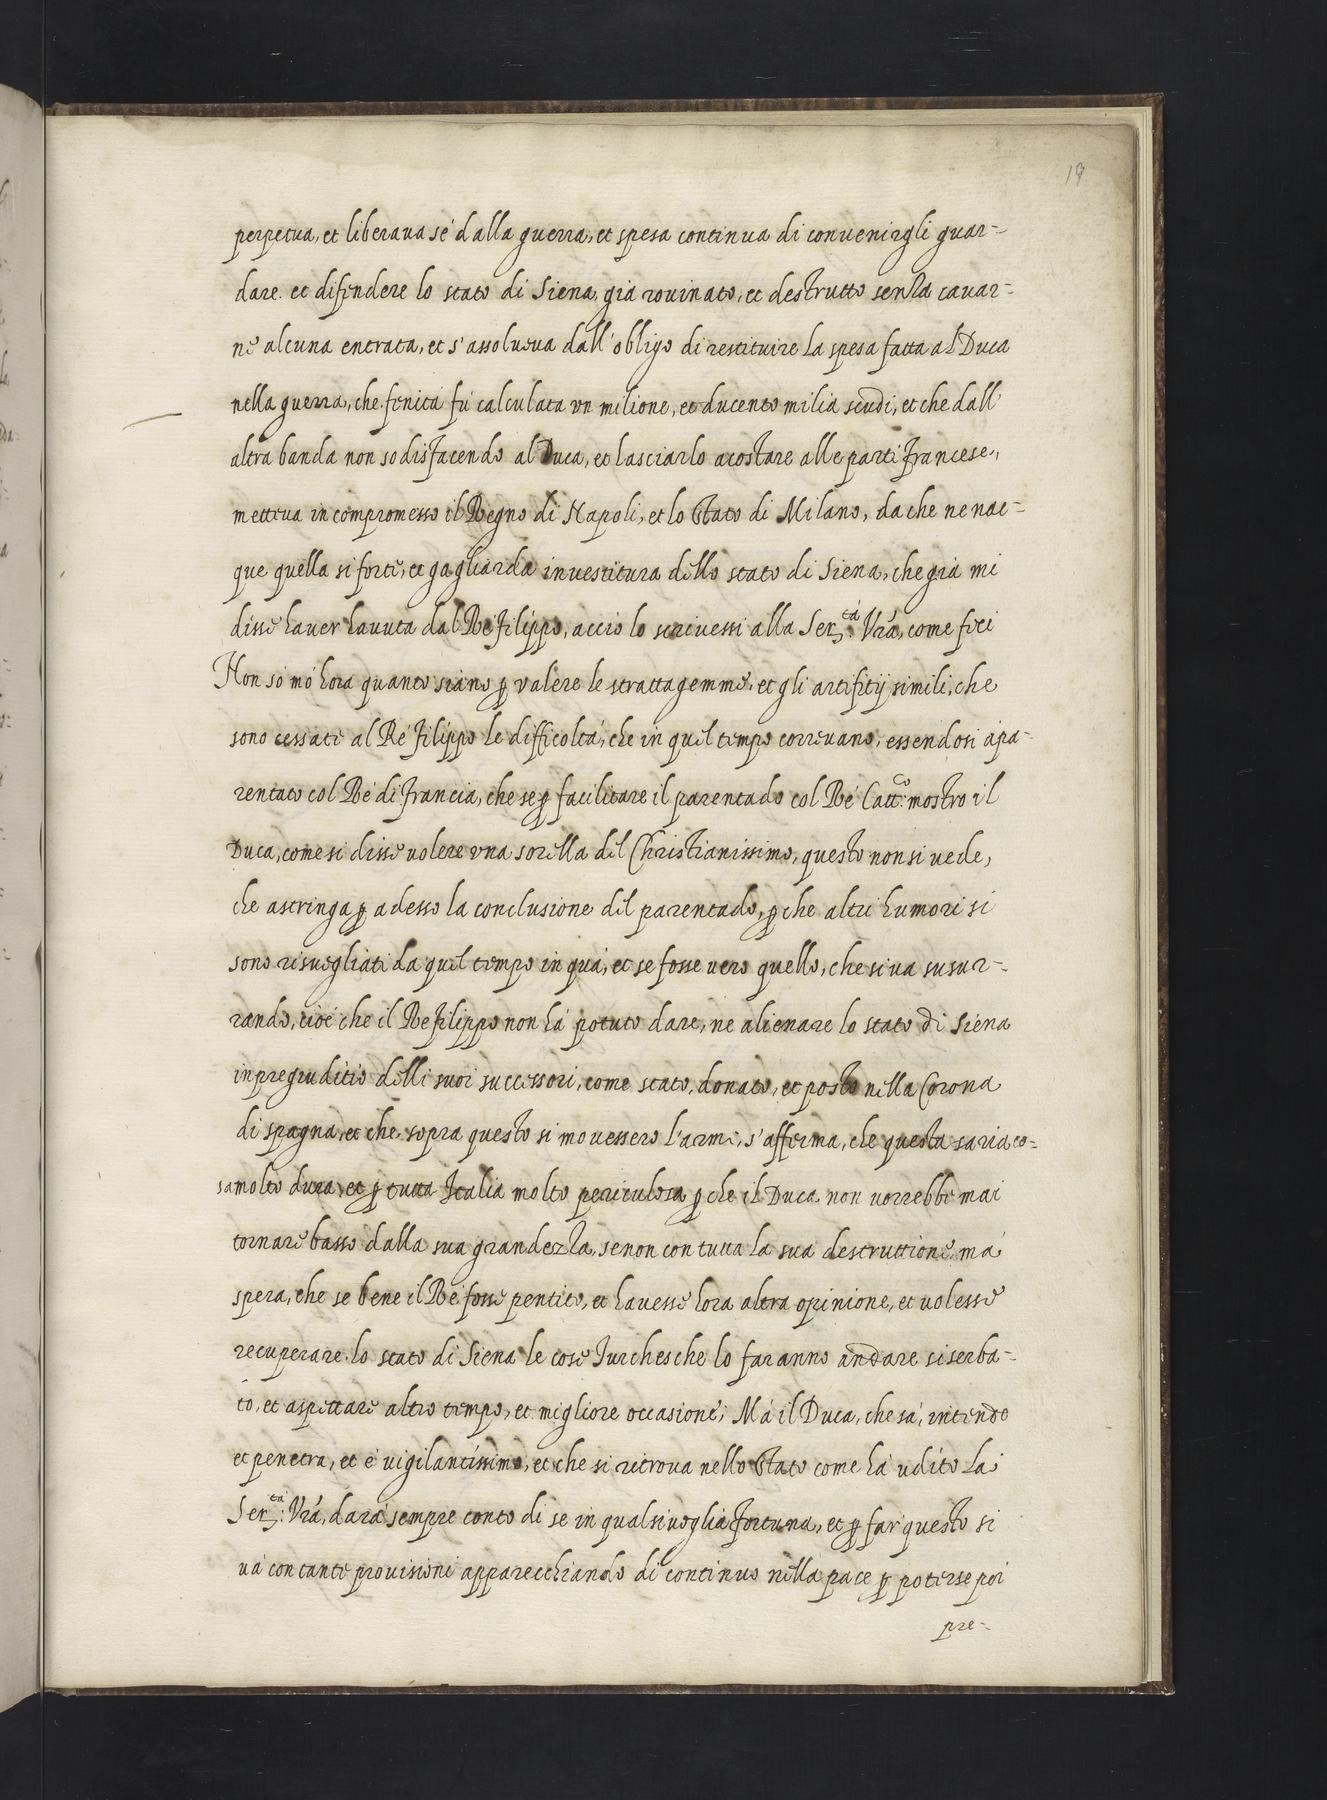 19
perpetua, et liberaua sé dalla guerra, et spesa continua di conuenirgli guar-
dare. et difendere lo stato di Siena, già rouinato, et destrutto senza cauar-
ne alcuna entrata, et s'assolueua dall'obligo di restituire la spesa fatta al Duca
nella guerra, che fenita fù calculata vn milione, et ducento milia scudi, et che dall'
altra banda non sodisfacendo al Duca, et lasciarlo acostare alle parti francese,
metteua in compromesso il Regno di Napoli, et lo Stato di Milano, da che ne nac-
que quella si forte, et gagliarda inuestitura dello stato di Siena, che già mi
disse hauer hauuta dal Ré Filippo, acciò lo scriuessi alla Ser.tà Vra, come feci
Non sò mò hora quanto siano ꝑ valere le strattagemme, et gli artifitij simili, che
sono cessate al Ré Filippo le difficoltà, che in quel tempo correuano, essendosi apa-
rentato col Ré di Francia, che se ꝑ facilitare il parentado col Ré Catt.co mostro il
Duca, come si disse volere vna sorella del Christianissimo, questo non si vede,
che astringa ꝑ adesso la conclusione del parentado, ꝑche altri humori si
sono risuegliati da quel tempo in quà, et se fosse vero quello, che si va susur-
rando, cioè che il Re Filippo non hà potuto dare, ne alienare lo stato di Siena
in pregiuditio delli suoi successori, come stato, donato, et posto nella Corona
di spagna, et che sopra questo si mouessero l'armi, s'afferma, che questa saria co-
sa molto dura, et ꝑ tutta Italia molto periculosa ꝑche il Duca non vorrebbe mai
tornare basso dalla sua grandezza, se non con tutta la sua destruttione, mà
spera, che se bene il Ré fosse pentito, et hauesse hora altra opinione, et volesse
recuperare lo stato di Siena le cose Turchesche lo faranno andare si serba-
to, et aspettare altro tempo, et migliore occasione; Mà il Duca, che sà, intende
et penetra, et è vigilantissimo, et che si ritroua nello Stato come hà udito la
Ser.tà Vra, darà sempre conto di se in qualsiuoglia fortuna, et ꝑ far questo si
uà con tante prouisioni apparecchiando di continuo nella pace ꝑ poterse poi
pre-